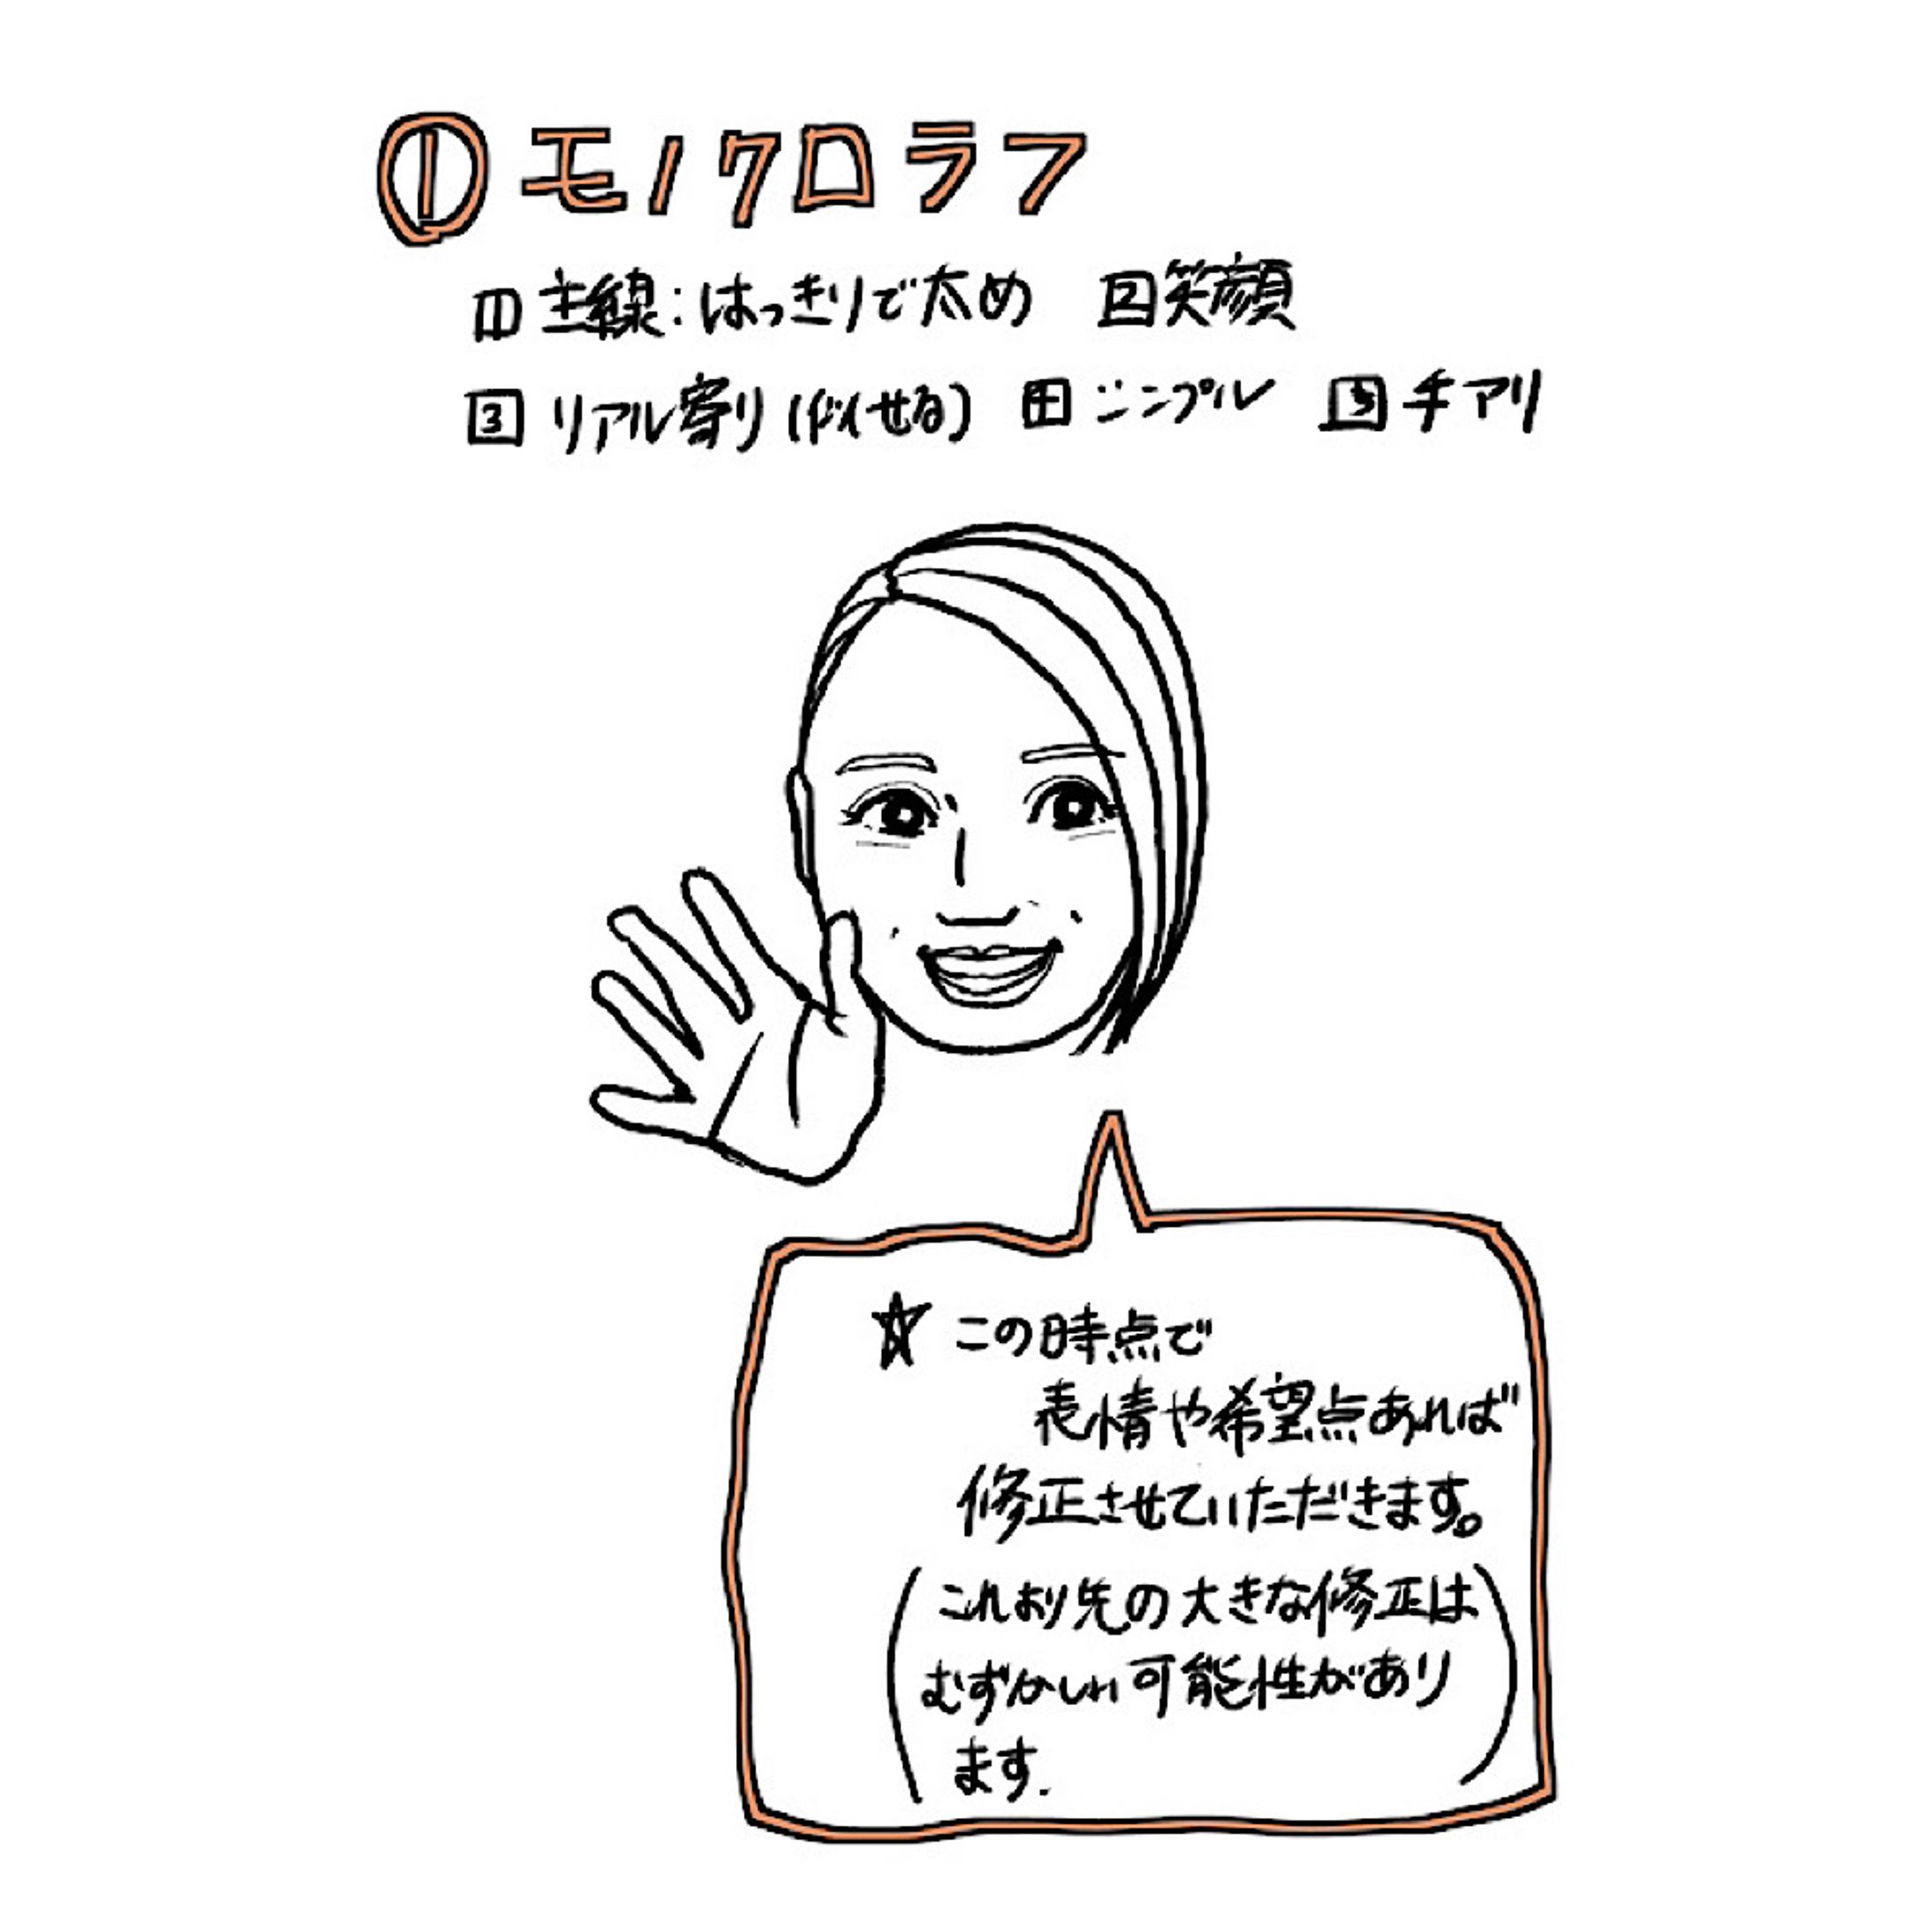 ① モノクロラフ
1 主線:はっきりで太め 2 笑顔
3 リアル寄り(似せる) 4 シンプル 5 手アリ
☆ この時点で
表情や希望点あれば
修正させていただきます。
(これより先の大きな修正は
むずかしい可能性があり
ます.)